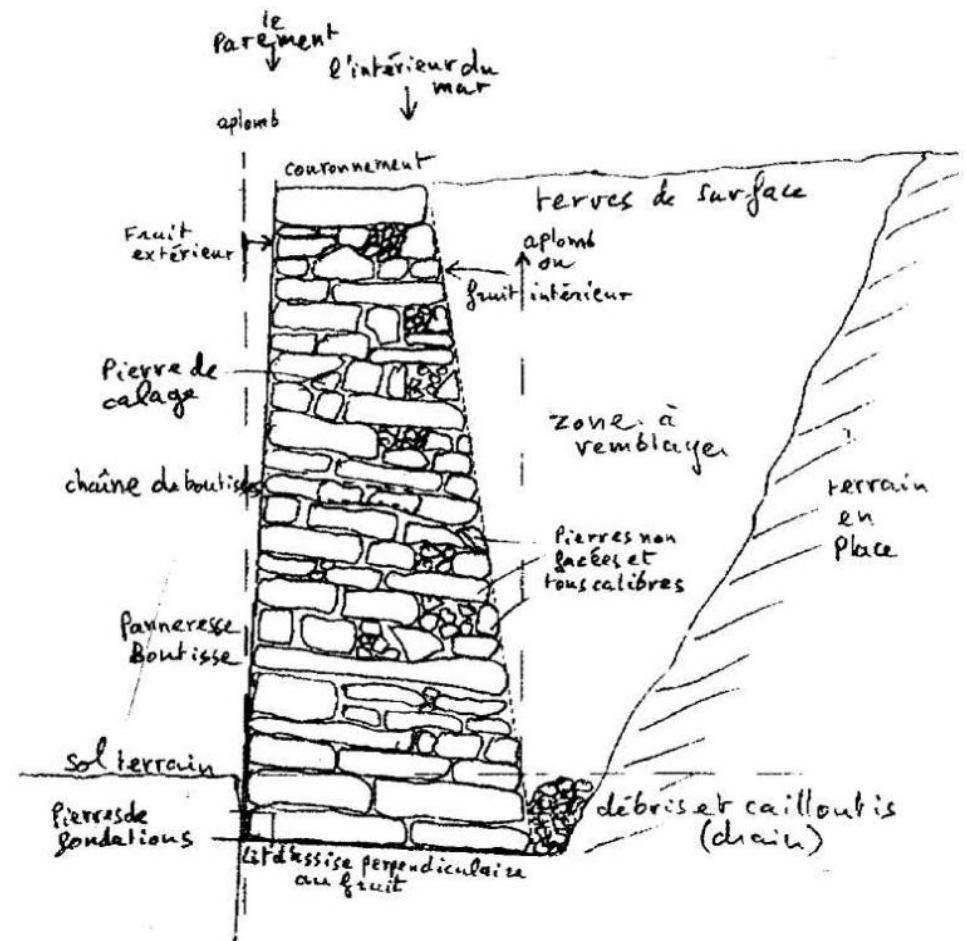 le
Parement
l'intérieur du
mur
aplomb
couronnement
terres de surface
Fruit
extérieur
aplomb
ou
fruit intérieur
Pierre de
calage
zone à
remblayer
chaîne de boutisses
terrain
en
Place
Pierres non
facées et
tous calibres
Panneresse
Boutisse
sol terrain
Pierres de
fondations
débris et cailloutis
(drain)
Lit d'assise perpendiculaire
au fruit